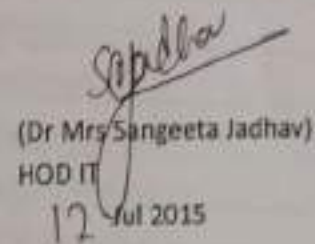 (Dr Mrs Sangeeta Jadhav)
HOD IT
12 Jul 2015